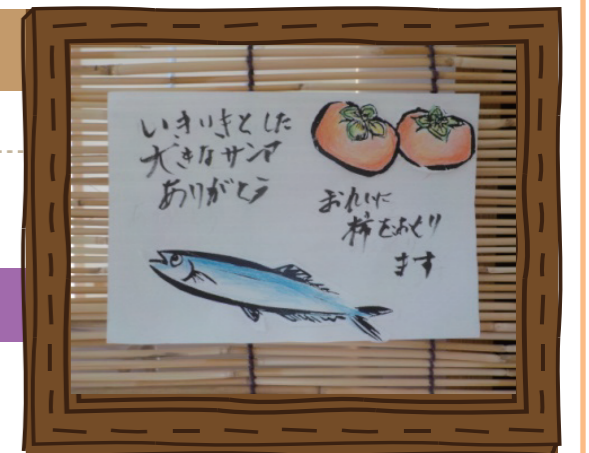 いきいきとした
大きなサンマ
ありがとう
おれいに
柿をおくり
ます